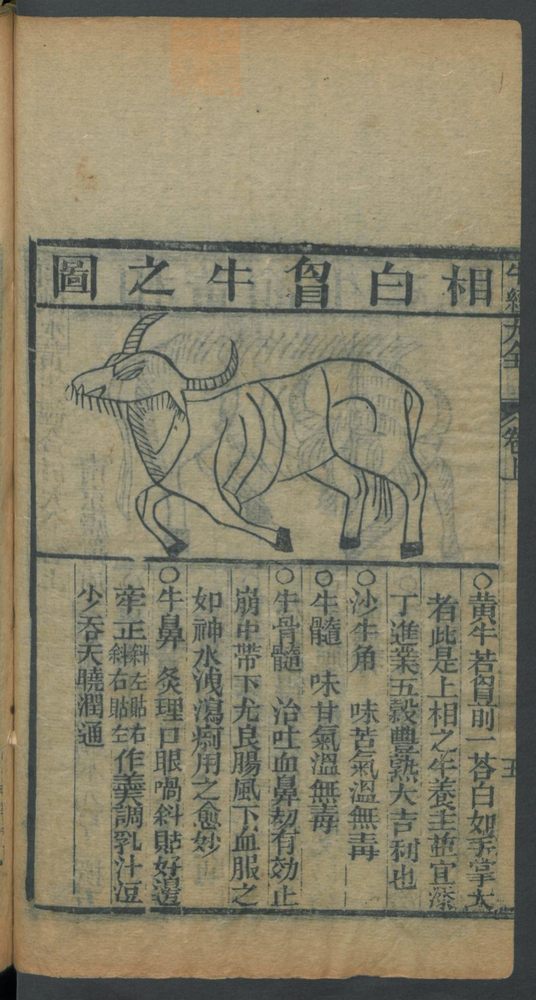 相白胷牛之圖
○黃牛若胷前一答白如手掌大
者此是上相之牛養主 宜添
丁進業五穀豐熟大吉利也
○沙牛角 味苦氣溫無毒
○牛髓 味甘氣溫無毒
○牛骨髓 治吐血鼻刧有効止
崩中帶下尤良腸風下血服之
如神水洩瀉痢用之愈妙
○牛鼻 灸理口眼喎斜貼好邊
牽正斜左貼右斜右貼左作羹調乳汁
少吞天曉潤通
牛經大全 卷上
五